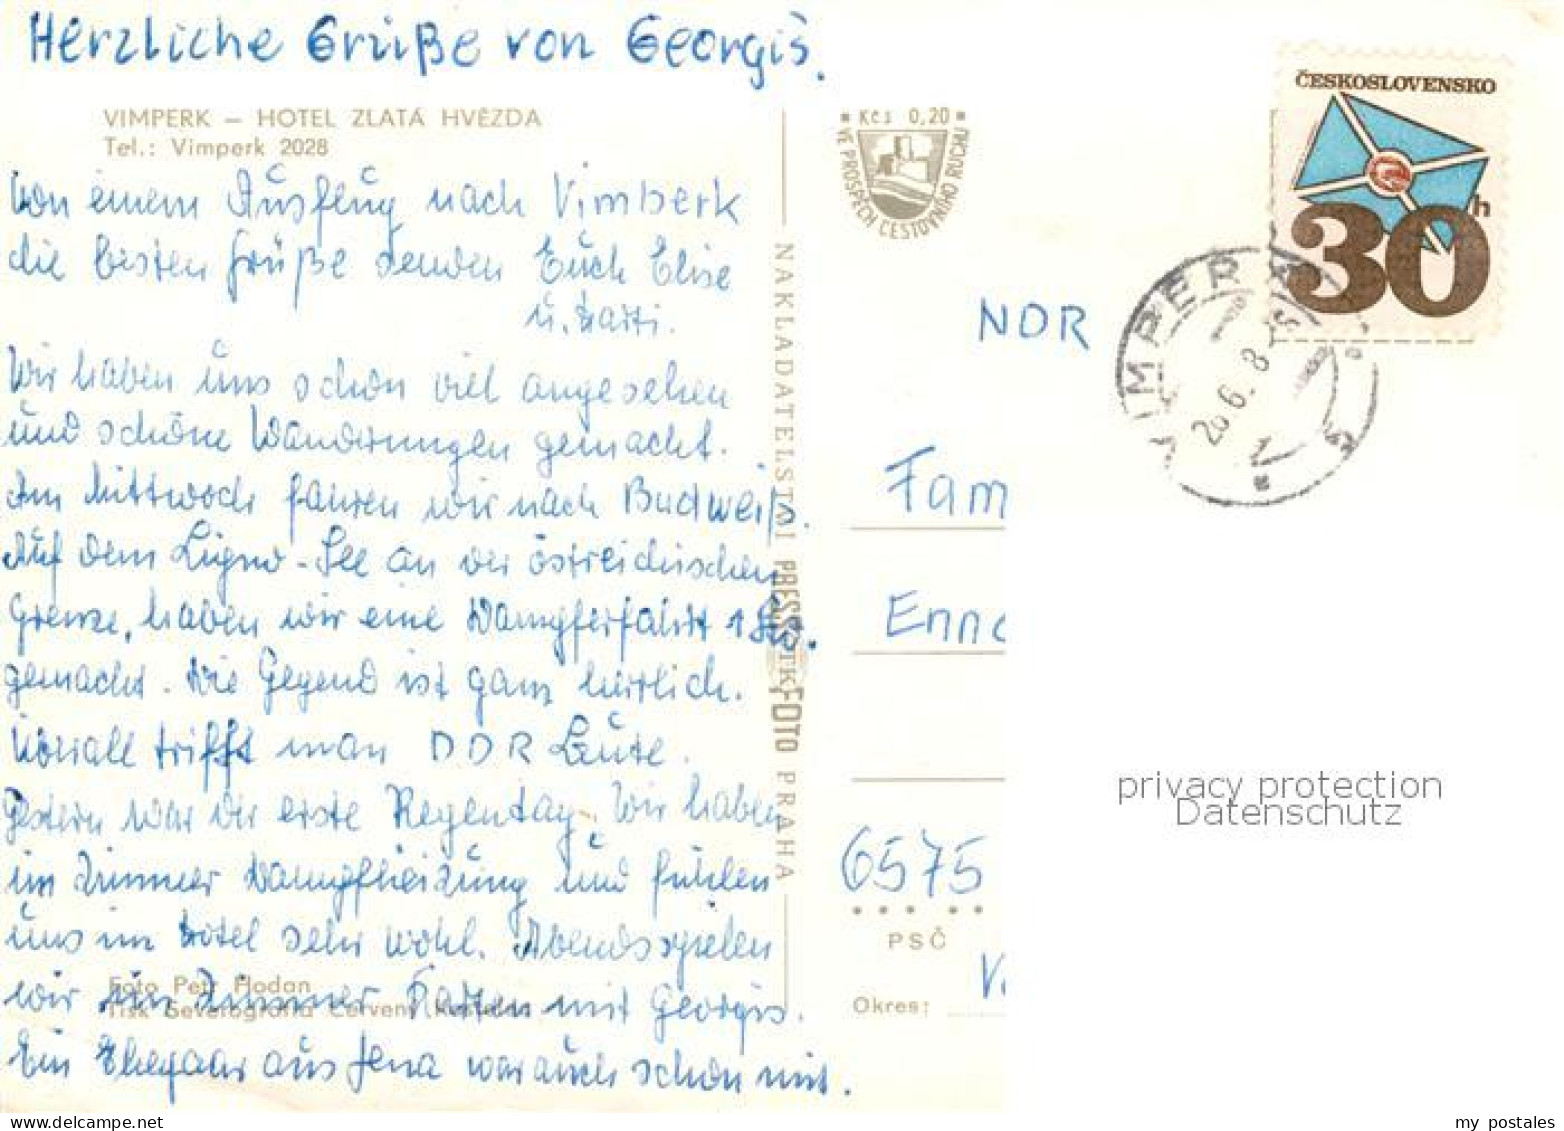 Herzliche Grüße von Georgis.
VIMPERK – HOTEL ZLATÁ HVĚZDA
Tel.: Vimperk 2028
Von einem Ausflug nach Vimberk
die besten Grüße senden Euch Elise
u.
Wir haben uns schon viel angesehen
und schöne Wanderungen gemacht.
Am Mittwoch fahren wir nach Budweiß.
Auf dem -See an der östreichischen
Grenze, haben wir eine Dampferfahrt 1 Std.
gemacht. Die Gegend ist ganz herrlich.
Überall trifft man DDR Leute.
Gestern war der erste Regentag. Wir haben
im Zimmer Dampfheizung und fühlen
uns im Hotel sehr wohl. Abends spielen
wir im Zimmer Karten mit Georgis.
Ein Ehepaar aus Jena war auch schon mit.
Foto Petr Hodan
Tisk Severografia Červený Kostelec
NAKLADATELSTVÍ PRESSFOTO PRAHA
ČTK
Kčs 0,20
VE PROSPĚCH CESTOVNÍHO RUCHU
ČESKOSLOVENSKO
30h
VIMPERK
26.6.8
1
NDR
Fam
Enn
6575
PSČ
V
Okres:
privacy protection
Datenschutz
my postales